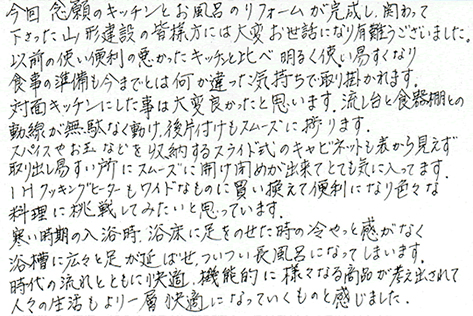 今回 念願のキッチンとお風呂のリフォームが完成し、関わって
下さった山形建設の皆様方には大変お世話になり有難うございました。
以前の使い便利の悪かったキッチンと比べ 明るく使い易すくなり
食事の準備も今までとは何が違った気持ちで取り掛かれます。
対面キッチンにした事は大変良かったと思います。流し台と食器棚との
動線が無駄なく動け、後片付けもスムーズに捗ります。
スパイスやお玉などを収納するスライド式のキャビネットも表から見えず
取り出し易すい所にスムーズに開け閉めが出来てとても気に入ってます。
IHクッキングヒーターもワイドなものに買い換えて便利になり色々な
料理に挑戦してみたいと思っています。
寒い時期の入浴時、浴床に足をのせた時の冷やっと感がなく
浴槽に広々と足が延ばせ、ついつい長風呂になってしまいます。
時代の流れとともに快適、機能的に様々なる商品が考え出されて
人々の生活もより一層快適になっていくものと感じました。